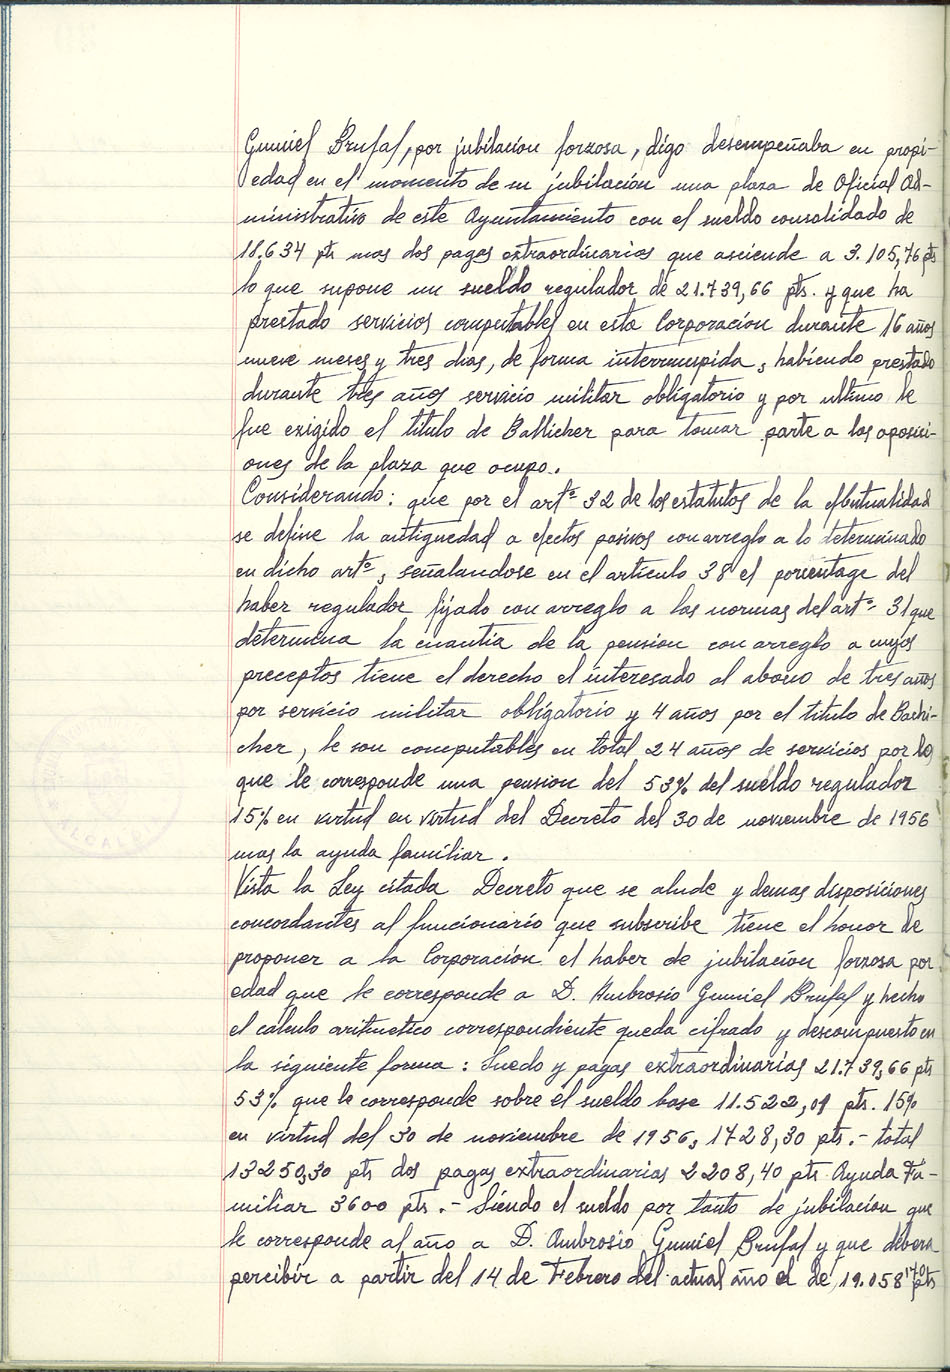 Gumiel Brufal, por jubilacion forzosa, digo desempeñaba en propi-
edad en el momento de su jubilación una plaza de Oficial Ad-
ministrativo de este Ayuntamiento con el sueldo consolidado de
18.634 pts mas dos pagas extraordinarias que asciende a 3.105,76 pts
lo que supone un sueldo regulador de 21.739,66 pts. y que ha
prestado servicios computables en esta Corporación durante 16 años
nueve meses y tres dias, de forma interrumpida, habiendo prestado
durante tres años servicio militar obligatorio y por ultimo le
fue exigido el titulo de Ballicher para tomar parte a las oposici-
ones de la plaza que ocupo.
Considerando: que por el artº 32 de los estatutos de la Mutualidad
se define la antiguedad a efectos pasivos con arreglo a lo determinado
en dicho artº, señalandose en el artículo 38 el porcentage del
haber regulador fijado con arreglo a las normas del artº 31 que
determina la cuantia de la pension con arreglo a cuyos
preceptos tiene el derecho el interesado al abono de tres años
por servicio militar obligatorio y 4 años por el titulo de Bachi-
cher, le son computables en total 24 años de servicios por lo
que le corresponde una pension del 53% del sueldo regulador
15% en virtud en virtud del Decreto del 30 de noviembre de 1956
mas la ayuda familiar.
Vista la Ley citada Decreto que se alude y demas disposiciones
concordantes al funcionario que subscribe tiene el honor de
proponer a la Corporación el haber de jubilacion forzosa por
edad que le corresponde a D. Ambrosio Gumiel Brufal y hecho
el cálculo aritmetico correspondiente queda cifrado y descompuesto en
la siguiente forma: Suedo y pagas extraordinarias 21.739,66 pts
53% que le corresponde sobre el sueldo base 11.522,01 pts. 15%
en virtud del 30 de noviembre de 1956, 1728,30 pts.- total
13250,30 pts dos pagas extraordinarias 2208,40 pts Ayuda Fa-
miliar 3600 pts.- Siendo el sueldo por tanto de jubilacion que
le corresponde al año a D. Ambrosio Gumiel Brufal y que debera
percibir a partir del 14 de Febrero del actual año el de 19.058'70 pts
ALCALDIA